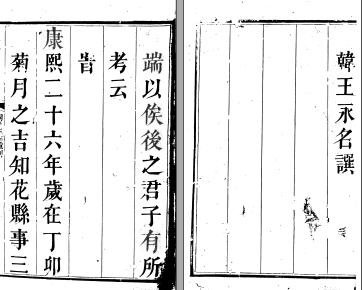 端以俟後之君子有所
考云
旹
康熙二十六年歲在丁卯
菊月之吉知花縣事三
韓王永名譔